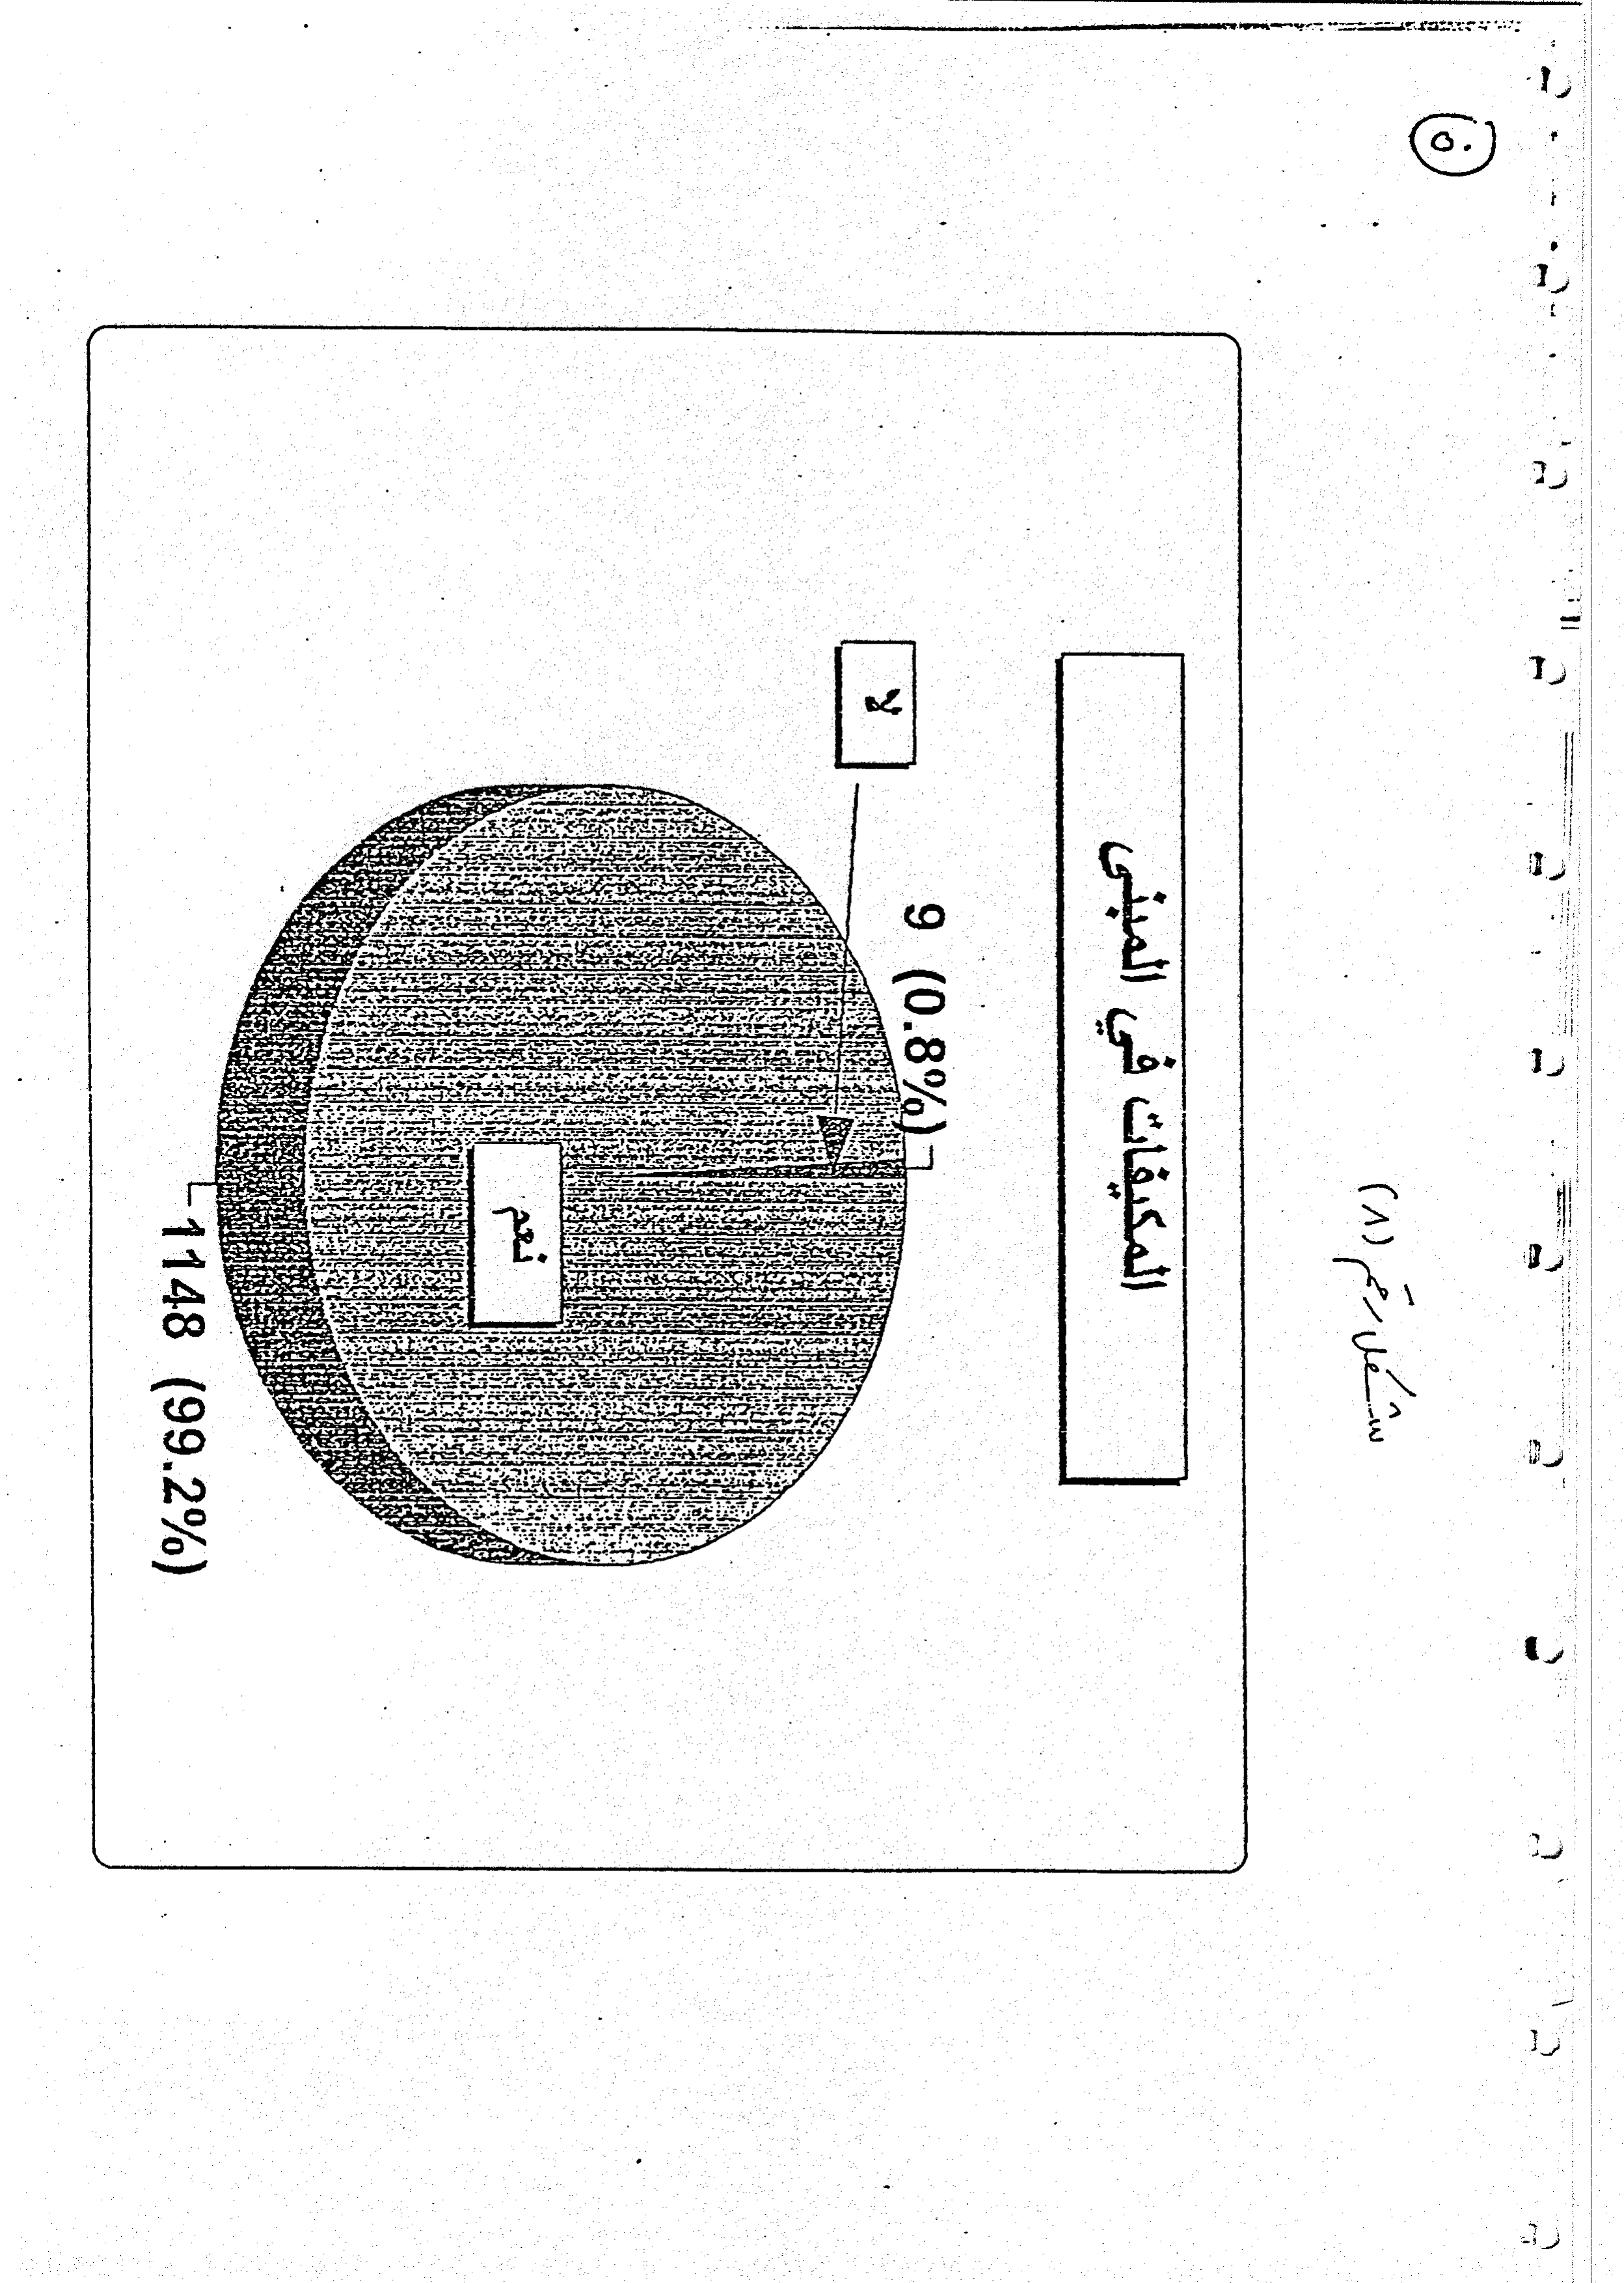 ٥٠
شكل رقم (٨)
المكيفات في المبنى
لا
9 (0.8%)
نعم
1148 (99.2%)